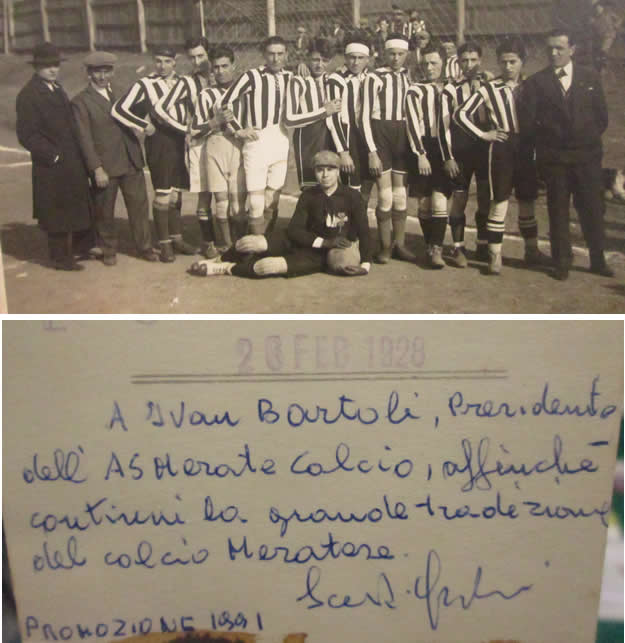 26 FEB 1928
A Ivan Bartoli, Presidente
dell' AS Merate Calcio, affinchè
continui la grande tradizione
del calcio Meratese.
PROMOZIONE 1991